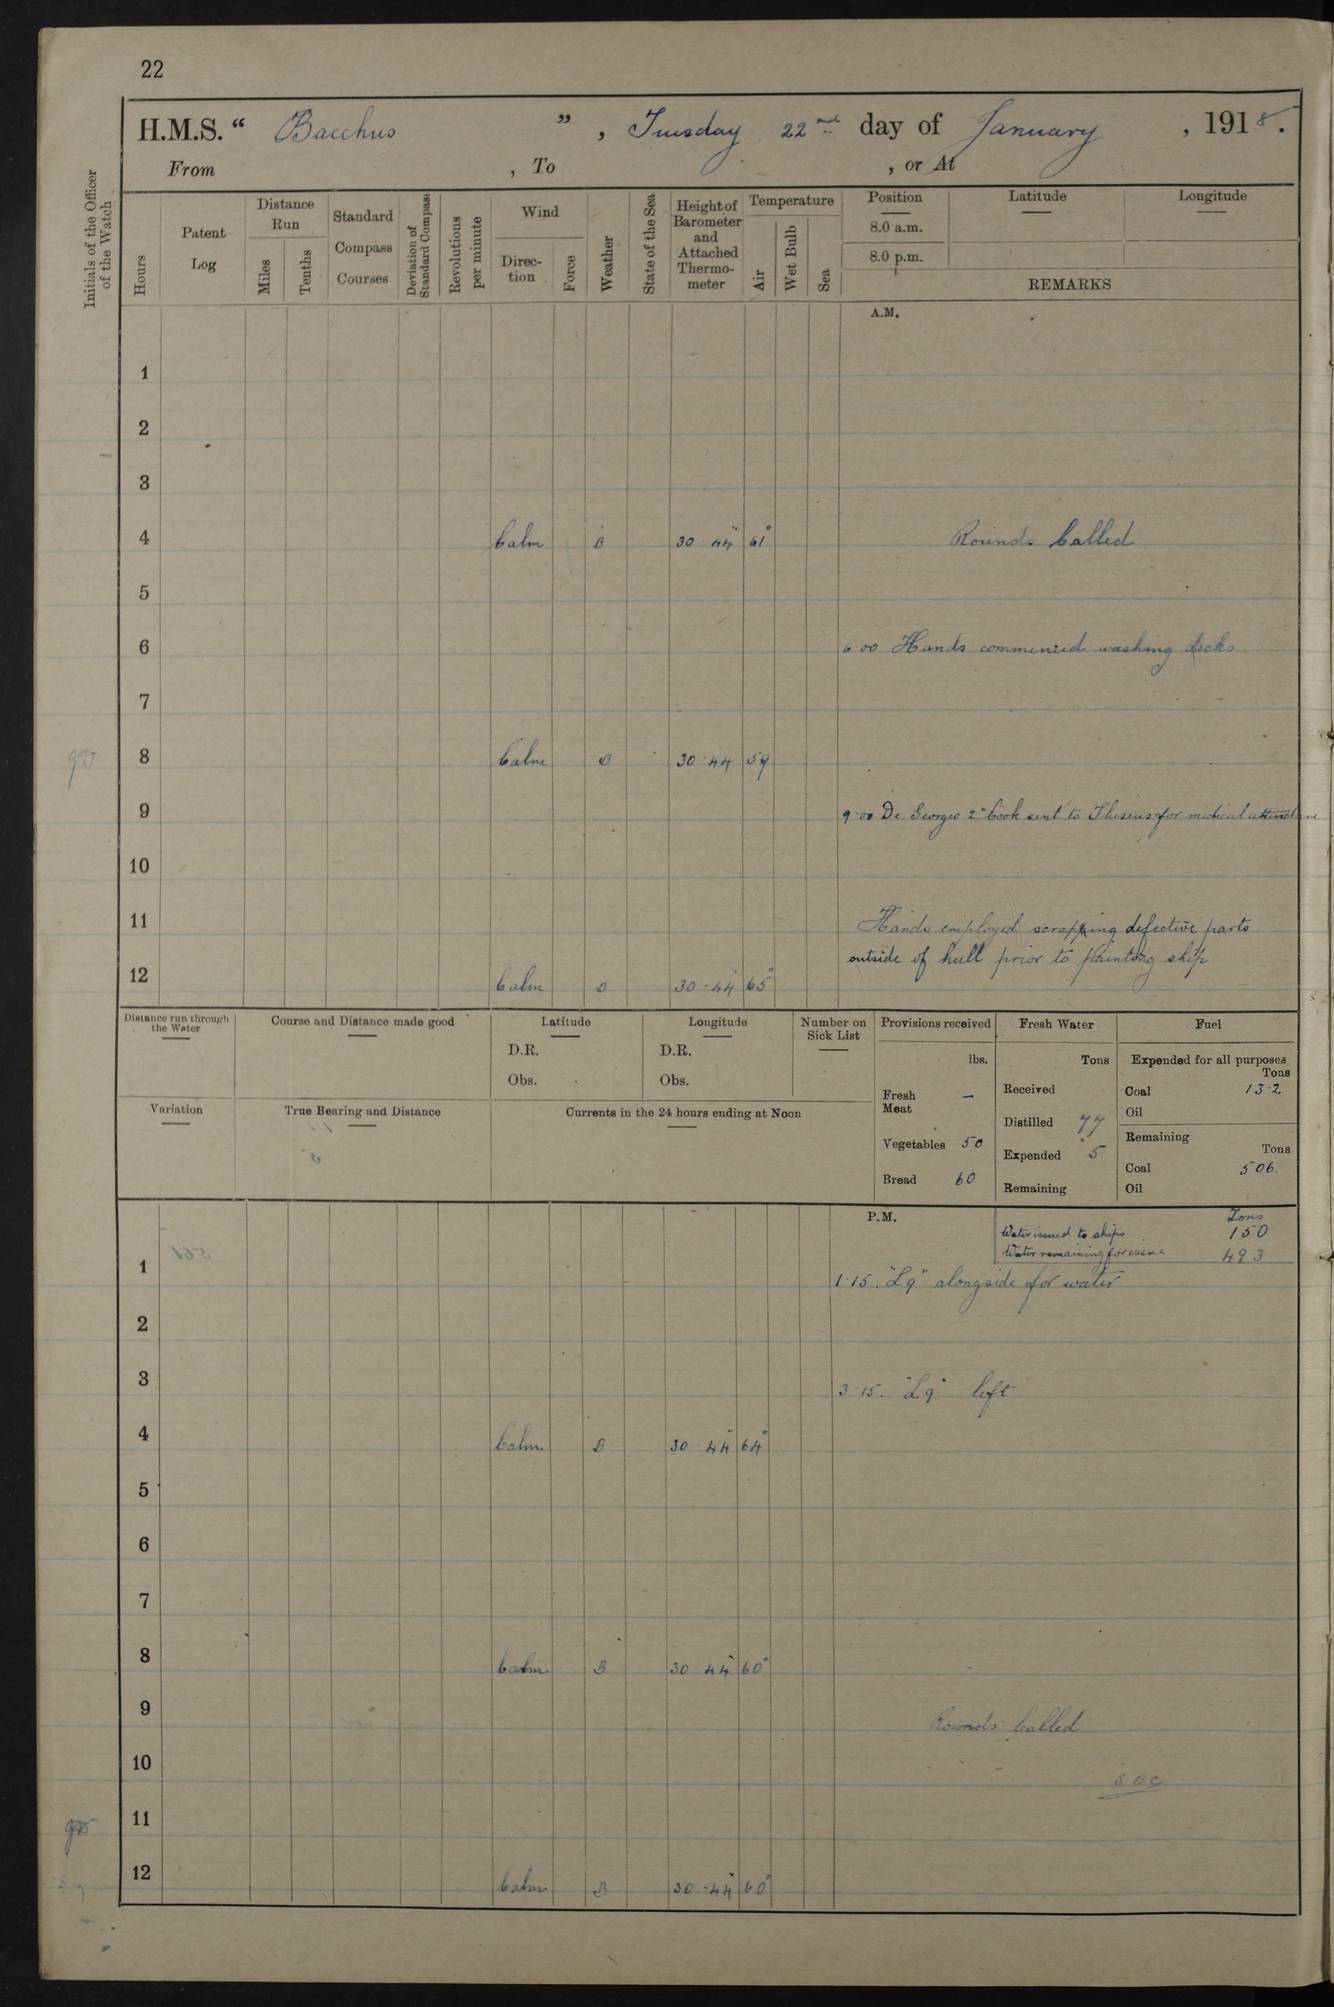 22
H.M.S. “ Bacchus ” , Tuesday 22nd day of January , 1918.
From , To , or At
Initials of the Officer of the Watch
Hours
Patent Log
Distance Run
Miles
Tenths
Standard Compass Courses
Deviation of Standard Compass
Revolutions per minute
Wind
Direc-tion
Force
Weather
State of the Sea
Height of Barometer and Attached Thermo-meter
Temperature
Air
Wet Bulb
Sea
Position Latitude Longitude
8.0 a.m.
8.0 p.m.
REMARKS
A.M.
1
2
3
4 Calm B 30.44" 61° Rounds Called
5
6 6.00 Hands commenced washing decks
7
8 Calm 30.44 59
9 9.00 De Georgio 2nd Cook sent to Theseus for medical attendance
10
11 Hands employed scrapping defective parts
outside of hull prior to painting ship
12 Calm 30.44 65°
Distance run through the Water
Course and Distance made good
Latitude
D.R.
Obs.
Longitude
D.R.
Obs.
Number on Sick List
Variation
True Bearing and Distance
Currents in the 24 hours ending at Noon
Provisions received
lbs.
Fresh Meat —
Vegetables 50
Bread 60
Fresh Water
Tons
Received
Distilled 77
Expended 5
Remaining
Fuel
Expended for all purposes
Tons
Coal 13.2
Oil
Remaining
Tons
Coal 506.
Oil
P.M.
Tons
Water issued to ships 150
Water remaining for issue 493
1 1.15. "L9" alongside for water
2
3 3.15. "L9" left
4 Calm B 30.44" 64°
5
6
7
8 Calm B 30 44" 60°
9 Rounds Called
10
11
12 Calm B 30.44" 60°